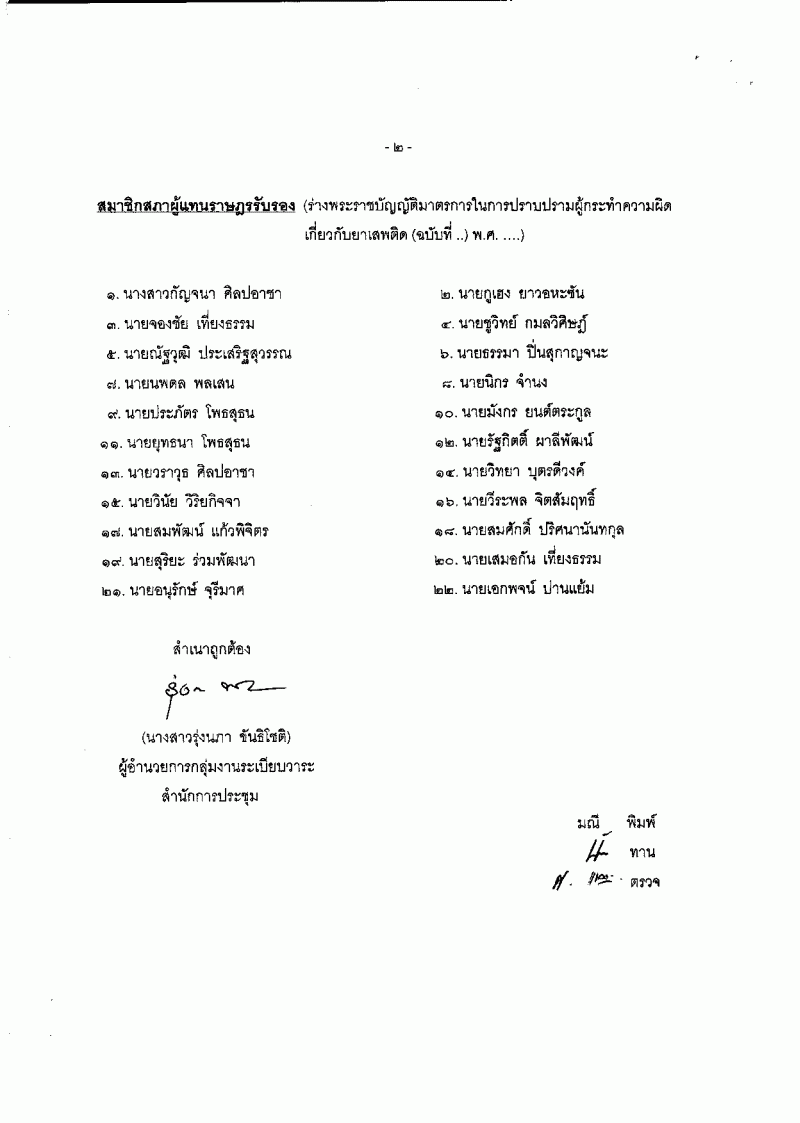 - ๒ -
สมาชิกสภาผู้แทนราษฎรรับรอง (ร่างพระราชบัญญัติมาตรการในการปราบปรามผู้กระทำความผิด
เกี่ยวกับยาเสพติด (ฉบับที่ ..) พ.ศ. ....)
๑. นางสาวกัญจนา ศิลปอาชา ๒. นายกูเฮง ยาวอหะซัน
๓. นายจองชัย เที่ยงธรรม ๔. นายชูวิทย์ กมลวิศิษฎ์
๕. นายณัฐวุฒิ ประเสริฐสุวรรณ ๖. นายธรรมา ปิ่นสุกาญจนะ
๗. นายนพดล พลเสน ๘. นายนิกร จำนง
๙. นายประภัตร โพธสุธน ๑๐. นายมังกร ยนต์ตระกูล
๑๑. นายยุทธนา โพธสุธน ๑๒. นายรัฐกิตติ์ ผาลีพัฒน์
๑๓. นายวราวุธ ศิลปอาชา ๑๔. นายวิทยา บุตรดีวงค์
๑๕. นายวินัย วิริยกิจจา ๑๖. นายวีระพล จิตสัมฤทธิ์
๑๗. นายสมพัฒน์ แก้วพิจิตร ๑๘. นายสมศักดิ์ ปริศนานันทกุล
๑๙. นายสุริยะ ร่วมพัฒนา ๒๐. นายเสมอกัน เที่ยงธรรม
๒๑. นายอนุรักษ์ จุรีมาศ ๒๒. นายเอกพจน์ ปานแย้ม
สำเนาถูกต้อง
(นางสาวรุ่งนภา ขันธิโชติ)
ผู้อำนวยการกลุ่มงานระเบียบวาระ
สำนักการประชุม
มณี พิมพ์
ทาน
ตรวจ